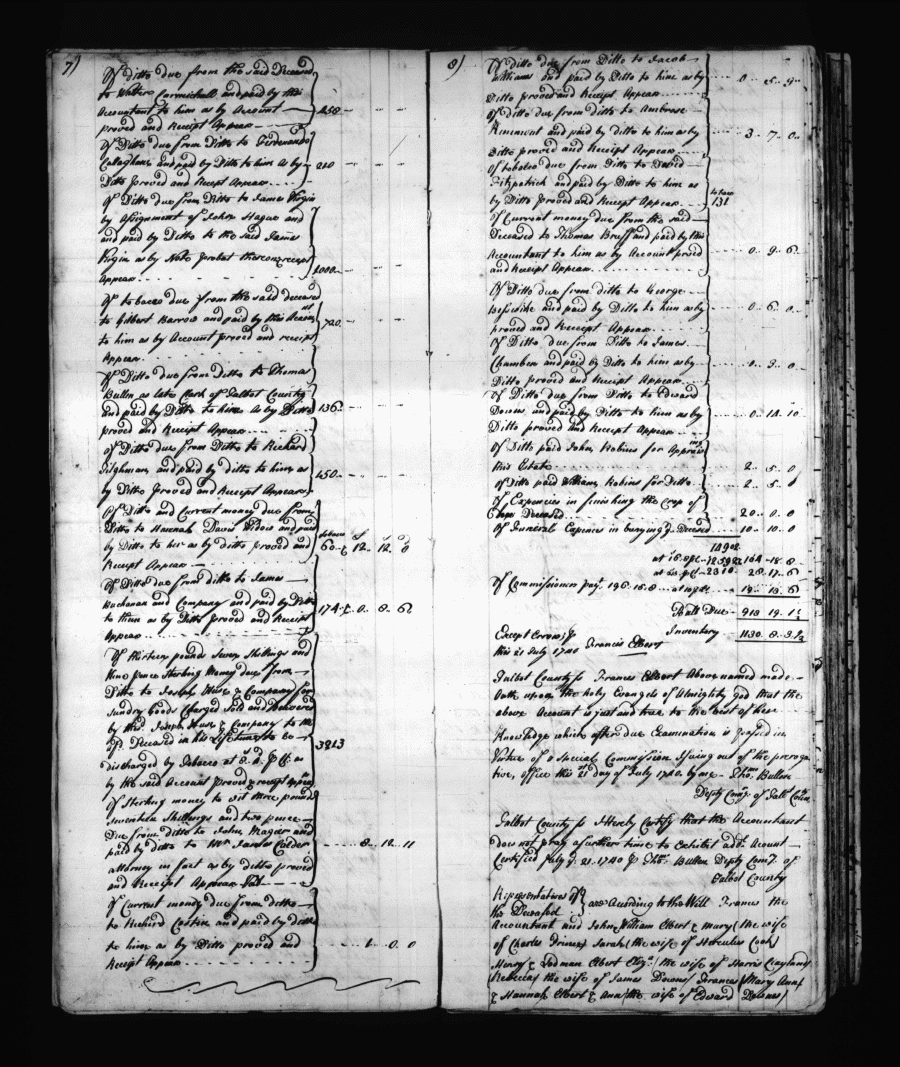 7)
Of ditto due from the said Deceased
to Walter Carmichall and paid by this
Accountant to him as by Account
proved and Receipt Appear 450
Of Ditto due from Ditto to
Callaghane and paid by Ditto to him as by 210
Ditto proved and Receipt Appear
Of Ditto due from Ditto to James
by Assignment of John Hague and
and paid by Ditto to the said James
as by Note Probat thereon receipt
Appear 1000
Of tobacco due from the said deceased
to Gilbert Barrow and paid by this Accot 720
to him as by Account proved and receipt
Appear
Of Ditto due from Ditto to Thomas
Bullen as late Clark of Talbot County
and paid by Ditto to him as by Ditto 136
proved and Receipt Appear
Of Ditto due from Ditto to Richard
Tilghman and paid by ditto to him as 450
by Ditto Proved and Receipt Appears
Of Ditto and Current money due from
Ditto to Hannah Davis Widow and paid tobacco
by Ditto to her as by ditto proved and 60 & 12 . 12 . 0
Receipt Appear
Of Ditto due from ditto to James
Buchanan and Company and paid by Ditto 174 & 0 . 8 . 6
to them as by Ditto proved and Receipt
Appear
Of thirteen pounds Seven Shillings and
Nine pence Sterling Money due from
Ditto to Joseph & Company for
Sundry Goods Charged Sold and Delivered
by this Joseph & Company to the
Deceased in his Lifetime to be 3213
discharged by Tobacco at as
by the said Account Proved & receipt Appear
Of Sterling money to wit three pounds
Seventeen Shillings and two pence
Due from ditto to John and
paid by ditto to Mr James Calder 8 . 10 . 11
attorney in fact as by ditto proved
and Receipt Appear
Of Current money due from ditto
to Richard and paid by ditto
to him as by Ditto proved and 1 . 0 . 0
Receipt Appear
8)
Of ditto due from Ditto to Jacob
Williams and paid by Ditto to him as by 0 . 5 . 9
Ditto proved and Receipt Appear
Of ditto due from ditto to Ambrose
Kininmont and paid by ditto to him as by 3 . 7 . 0
Ditto proved and Receipt Appear
Of tobacco due from Ditto to David
Fitzpatrick and paid by Ditto to him as tobacco
by Ditto Proved and Receipt Appear 131
Of Current money due from the said
Deceased to Thomas Bruff and paid by this
Accountant to him as by Account proved 0 . 9 . 6
and Receipt Appear
Of Ditto due from ditto to George
and paid by Ditto to him as by 0 . 6 . 0
proved and Receipt Appear
Of Ditto due from Ditto to James
Chamber and paid by Ditto to him as by 0 . 3 . 0
Ditto proved and Receipt Appear
Of Ditto due from Ditto to Edward
Downs and paid by Ditto to him as by 0 . 14 . 10
Ditto proved and Receipt Appear
Of Ditto paid John Robins for Appraising
this Estate 2 . 5 . 0
Of Ditto paid William Robins for Ditto 2 . 5 . 0
Of Expences in finishing the Crop of
Deceased 20 . 0 . 0
Of Funeral Expences in burying ye Deceased 10 . 10 . 0
14902
164 . 18 . 8
2310 28 . 17 . 6
Of Commissions 196 . 16 . 8
Ball Due 913 19 . 1½
Except Errors Inventory 1130 . 8 . 3½
this 21 July 1740 Francis Elbert
Talbot County ss Frances Elbert Above named made
Oath upon the holy Evangels of Almighty god that the
above Account is just and true to the best of her
Knowledge which after due Examination is passed in
Virtue of a special Commission issuing out of the preroga
tive Office this 21 day of July 1740. by me Tho. Bullen
Depty Comy. of Talbt County
Talbot County ss I Hereby Certify that the Accountant
does not pray a further time to Exhibit addl Acount
Certified July ye 21. 1740 Tho. Bullen Depty Comy. of
Talbot County
Representatives of
the Deceased are According to the Will Frances the
Accountant and John William Elbert & Mary (the wife
of Charles ) Sarah (the wife of Hercules Cook)
Henry & Lodman Elbert Eliza (the wife of Harris Clayland)
Rebecca (the wife of James Downs) Frances Mary Ann
& Hannah Elbert & Ann (the wife of Edward Downes)